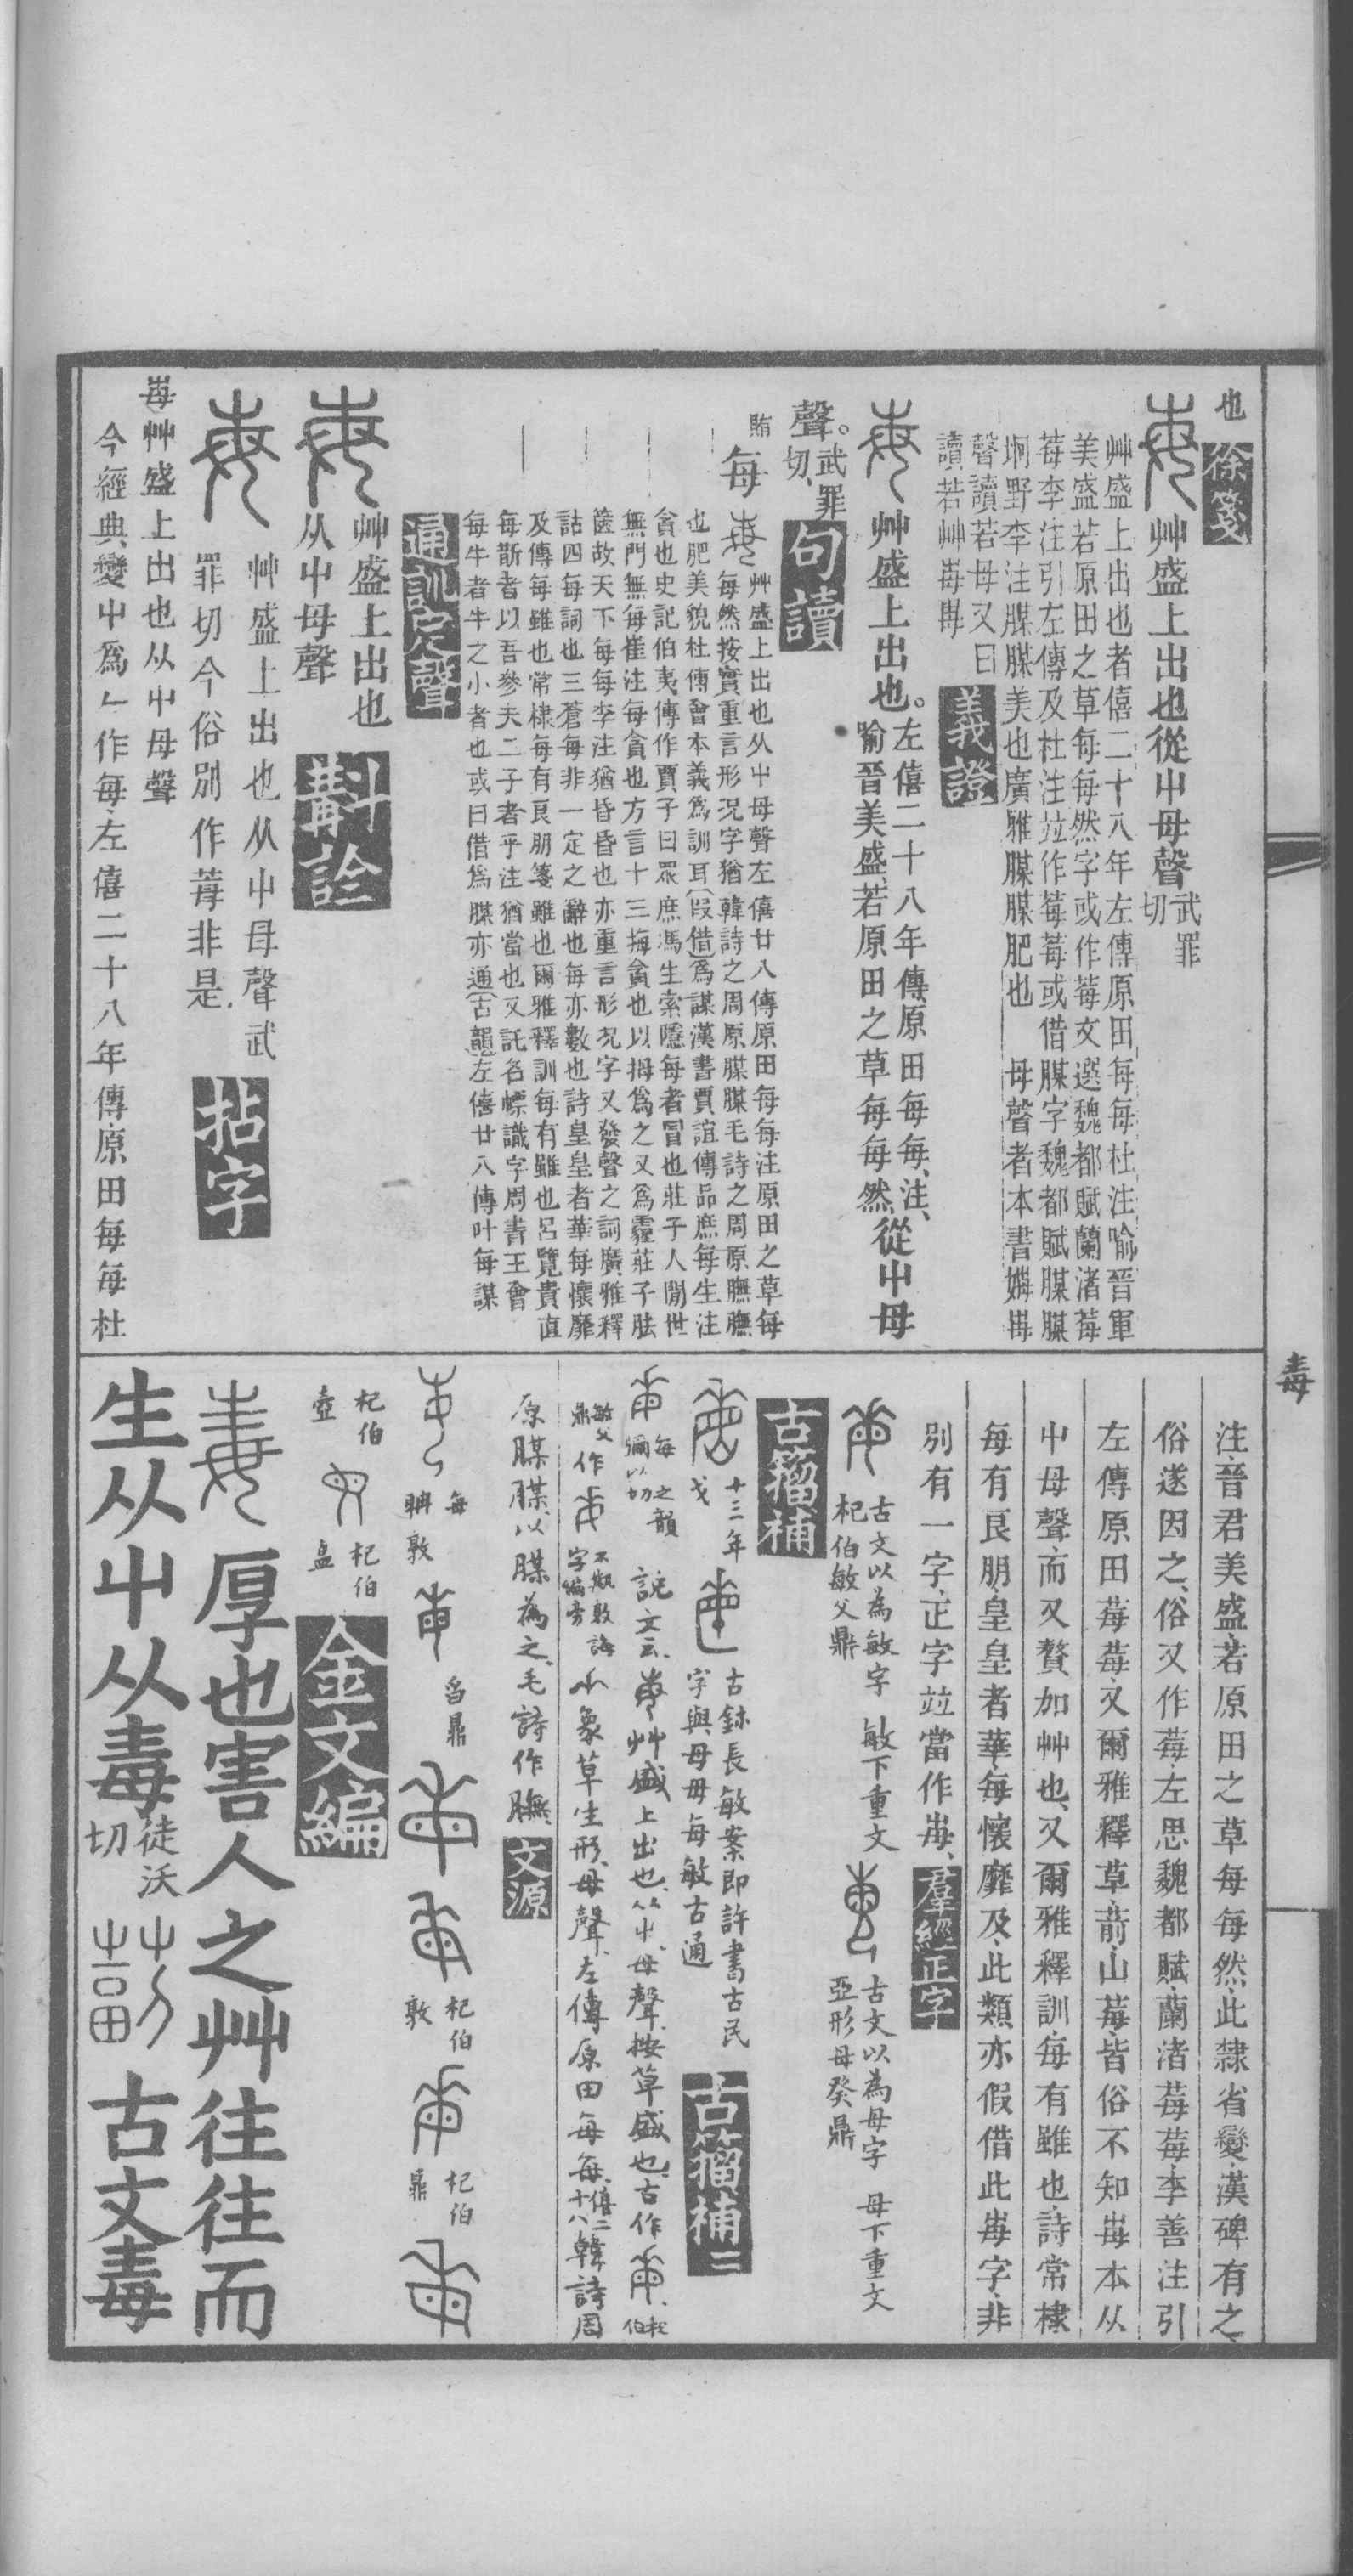 也 徐箋
艸盛上出也從屮母聲 武罪切
艸盛上出也者僖二十八年左傳原田每每杜注喻晉軍
美盛若原田之草每每然字或作莓文選魏都賦蘭渚莓
莓李注引左傳及杜注竝作莓莓或借腜字魏都賦腜腜
坰野李注腜腜美也廣雅腜腜肥也 母聲者本書㜒毎
聲讀若母又曰
讀若艸莓莓 義證
艸盛上出也。左僖二十八年傳原田每每、注、
喻晉美盛、若原田之草每每然 從屮母
聲。武罪切、 句讀
賄 每
艸盛上出也从屮母聲左僖廿八傳原田每每注原田之草每
每然按實重言形況字猶韓詩之周原腜腜毛詩之周原膴膴
也肥美貌杜傅會本義爲訓耳(叚借)爲謀漢書賈誼傳品庶每生注
貪也史記伯夷傳作賈子曰眾庶馮生索隱每者冒也莊子人閒世
無門無每崔注每貪也方言十三挴貪也以挴爲之又爲霾莊子胠
篋故天下每每李注猶昏昏也亦重言形況字又發聲之詞廣雅釋
詁四每詞也三蒼每非一定之辭也每亦數也詩皇皇者華每懷靡
及傳每雖也常棣每有良朋箋雖也爾雅釋訓每有雖也呂覽貴直
每斮者以吾參夫二子者乎注猶當也又託名幖識字周書王會
每牛者牛之小者也或曰借爲腜亦通(古韻)左僖廿八傳叶每謀
通訓定聲
艸盛上出也
从屮母聲 斠詮
艸盛上出也从屮母聲武
罪切今俗別作莓非是、 拈字
每艸盛上出也从屮母聲
今經典變屮爲𠂉作每、左僖二十八年傳、原田每每、杜
毒
注、晉君美盛、若原田之草每每然、此隸省變、漢碑有之、
俗遂因之、俗又作莓、左思魏都賦、蘭渚莓莓、李善注引
左傳原田莓莓、又爾雅釋草、葥、山莓、皆俗不知每本从
屮母聲、而又贅加艸也、又爾雅釋訓、每有雖也、詩常棣
每有良朋、皇皇者華、每懷靡及、此類亦假借此每字、非
別有一字、正字竝當作每、 羣經正字
古文以為敏字 杞伯敏父鼎 敏下重文
古文以為母字 亞形母癸鼎 母下重文
古籀補
十三年戈
古鉨長敏案即許書古民
字與母毋每敏古通 古籀補二
每 之韻 彌以切 說文云、艸盛上出也、从屮、母聲、按草盛也、古作 杞伯
敏父鼎 作 不䙷敦誨字偏旁 象草生形、母聲、左傳原田每每、僖二十八 韓詩周
原腜腜、以腜為之、毛詩作膴、 文源
每 䎽敦
舀鼎
杞伯敦
杞伯鼎
杞伯壺
杞伯盁
金文編
厚也害人之艸往往而
生从屮从毒 徒沃切 古文毒